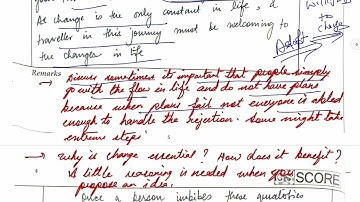 As change is the only constant in life, a
traveller in this journey must be welcoming to
the changes in life
to
change
Adapt
Remarks
→ Discuss sometimes its important that people simply
go with the flow in life and do not have plans
because when plans fail not everyone is abled
enough to handle the rejection. Some might take
extreme step.
→ Why is change essential? How does it benefit?
A little reasoning is needed when you
propose an idea.
SCORE
Once a person imbibes these qualities